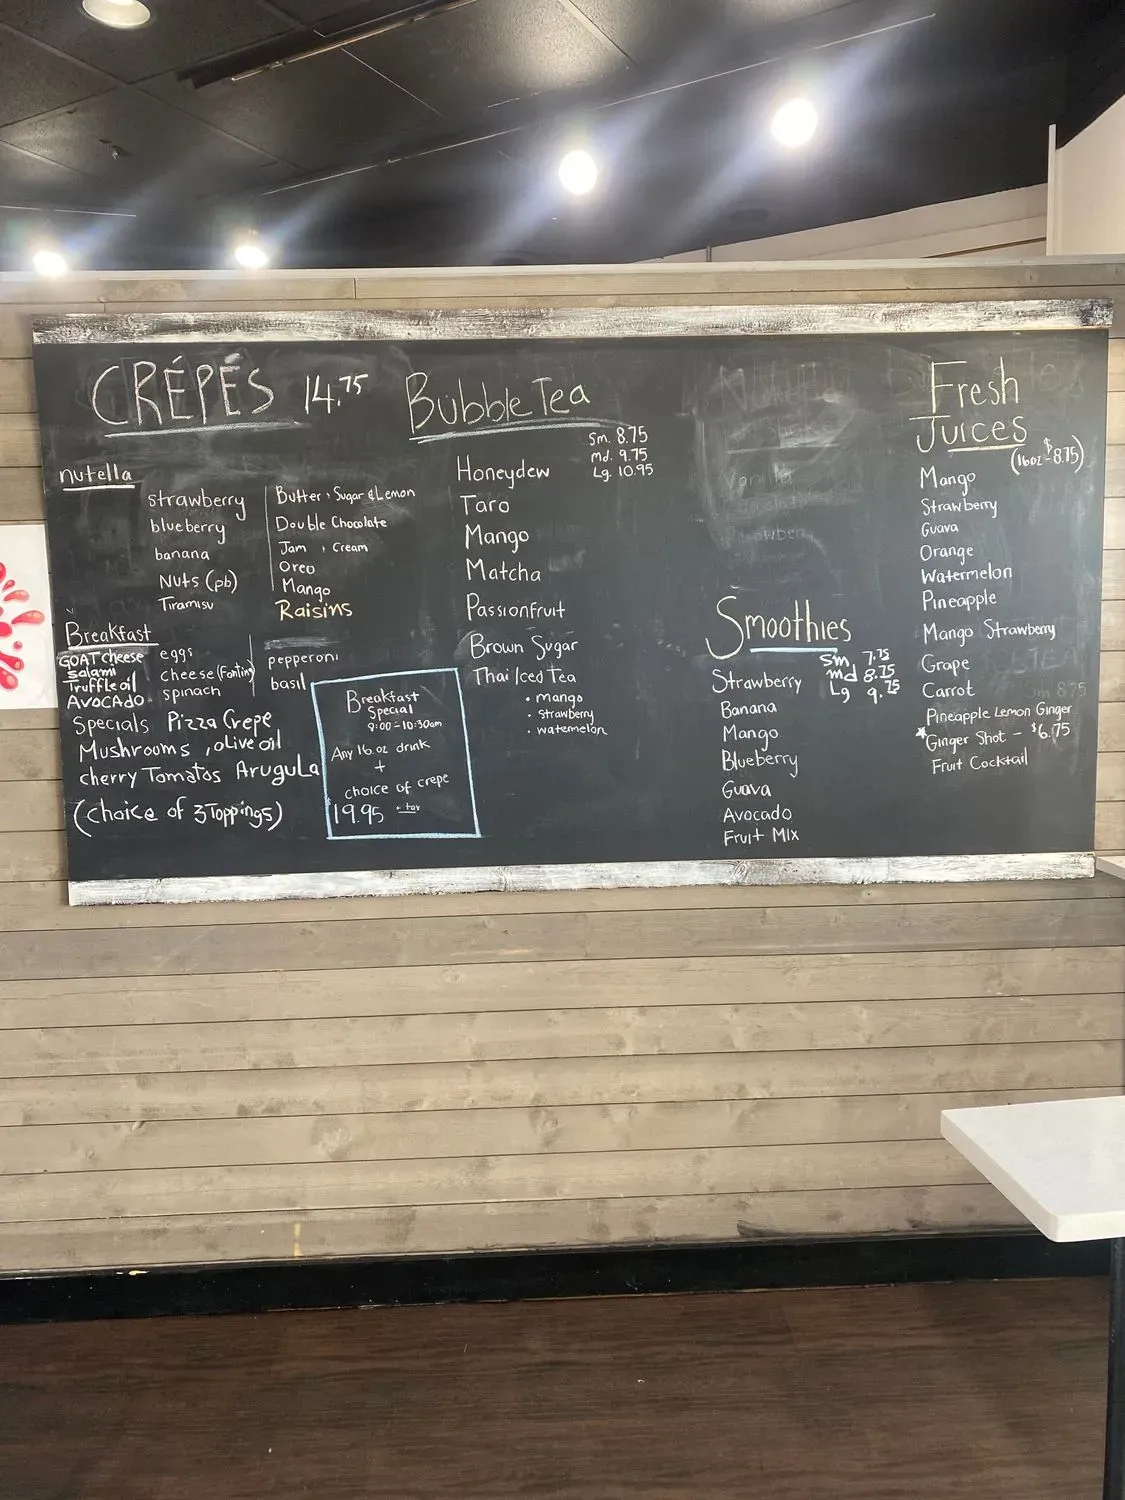 CRÉPÉS 14.75
nutella
strawberry
blueberry
banana
Nuts (pb)
Tiramisu
Butter, Sugar & Lemon
Double Chocolate
Jam, Cream
Oreo
Mango
Raisins
Breakfast
GOAT cheese
Salami
Truffle oil
AVOCADO
eggs
cheese (Fontina)
spinach
pepperoni
basil
Specials Pizza Crepe
Mushrooms, olive oil
cherry Tomatos Arugula
(choice of 3 Toppings)
Breakfast
Special
9:00-10:30am
Any 16.oz drink
+
choice of crepe
$19.95 + tax
Bubble Tea
Sm. 8.75
Md. 9.75
Lg. 10.95
Honeydew
Taro
Mango
Matcha
Passionfruit
Brown Sugar
Thai Iced Tea
• mango
• strawberry
• watemelon
Vanilla
Smoothies
Sm 7.75
md 8.75
Lg 9.75
Strawberry
Banana
Mango
Blueberry
Guava
Avocado
Fruit Mix
Fresh
Juices
(16oz-$8.75)
Mango
Strawberry
Guava
Orange
Watermelon
Pineapple
Mango Strawberry
Grape
Carrot
Pineapple Lemon Ginger
Ginger Shot - $6.75
Fruit Cocktail